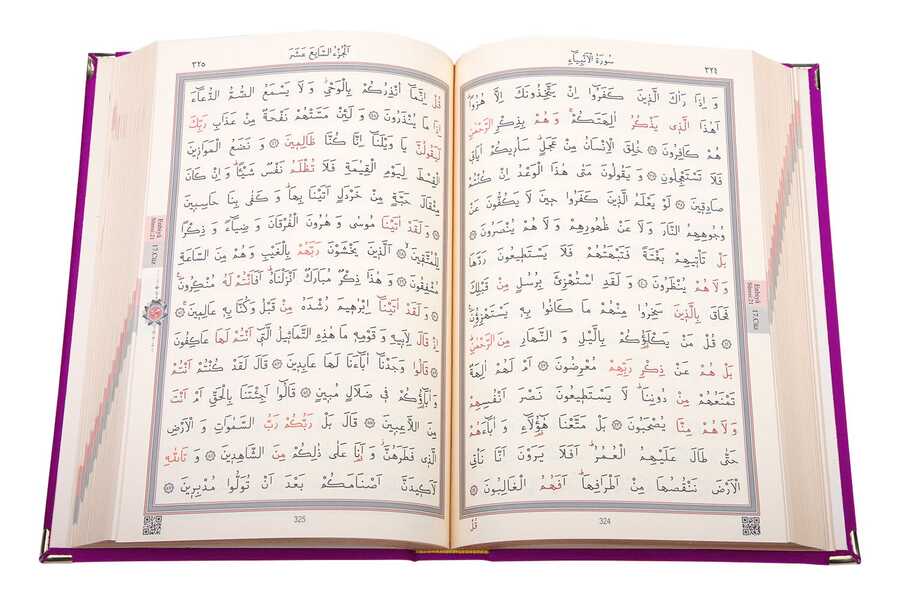 ٣٢٤
سُورَةُ الْاَنْبِيَاءِ
وَ اِذَا رَاٰكَ الَّذِينَ كَفَرُٓوا اِنْ يَتَّخِذُونَكَ اِلَّا هُزُوًاۜ
اَهٰذَا الَّذِي يَذْكُرُ اٰلِهَتَكُمْۚ وَ هُمْ بِذِكْرِ الرَّحْمٰنِ
هُمْ كَافِرُونَ ۝ خُلِقَ الْاِنْسَانُ مِنْ عَجَلٍۜ سَاُر۪يكُمْ اٰيَات۪ي
فَلَا تَسْتَعْجِلُونِ ۝ وَ يَقُولُونَ مَتٰى هٰذَا الْوَعْدُ اِنْ كُنْتُمْ
صَادِق۪ينَ ۝ لَوْ يَعْلَمُ الَّذ۪ينَ كَفَرُوا ح۪ينَ لَا يَكُفُّونَ عَنْ
وُجُوهِهِمُ النَّارَ وَ لَا عَنْ ظُهُورِهِمْ وَ لَا هُمْ يُنْصَرُونَ ۝
بَلْ تَأْت۪يهِمْ بَغْتَةً فَتَبْهَتُهُمْ فَلَا يَسْتَط۪يعُونَ رَدَّهَا
وَ لَا هُمْ يُنْظَرُونَ ۝ وَ لَقَدِ اسْتُهْزِئَ بِرُسُلٍ مِنْ قَبْلِكَ
فَحَاقَ بِالَّذ۪ينَ سَخِرُوا مِنْهُمْ مَا كَانُوا بِه۪ يَسْتَهْزِؤُ۫نَ۟
۝ قُلْ مَنْ يَكْلَؤُ۬كُمْ بِالَّيْلِ وَ النَّهَارِ مِنَ الرَّحْمٰنِۜ
بَلْ هُمْ عَنْ ذِكْرِ رَبِّهِمْ مُعْرِضُونَ ۝ اَمْ لَهُمْ اٰلِهَةٌ
تَمْنَعُهُمْ مِنْ دُونِنَاۜ لَا يَسْتَط۪يعُونَ نَصْرَ اَنْفُسِهِمْ
وَ لَا هُمْ مِنَّا يُصْحَبُونَ ۝ بَلْ مَتَّعْنَا هٰٓؤُ۬لَٓاءِ وَ اٰبَٓاءَهُمْ
حَتّٰى طَالَ عَلَيْهِمُ الْعُمُرُۜ اَفَلَا يَرَوْنَ اَنَّا نَأْتِي
الْاَرْضَ نَنْقُصُهَا مِنْ اَطْرَافِهَاۜ اَفَهُمُ الْغَالِبُونَ ۝
قُلْ
324
Enbiyâ
Sûresi 21
17.Cüz
٣٢٥
اَلْجُزْءُ السَّابِعَ عَشَرَ
قُلْ اِنَّمَٓا اُنْذِرُكُمْ بِالْوَحْيِۘ وَ لَا يَسْمَعُ الصُّمُّ الدُّعَٓاءَ
اِذَا مَا يُنْذَرُونَ ۝ وَ لَئِنْ مَسَّتْهُمْ نَفْحَةٌ مِنْ عَذَابِ رَبِّكَ
لَيَقُولُنَّ يَا وَيْلَنَٓا اِنَّا كُنَّا ظَالِم۪ينَ ۝ وَ نَضَعُ الْمَوَاز۪ينَ
الْقِسْطَ لِيَوْمِ الْقِيٰمَةِ فَلَا تُظْلَمُ نَفْسٌ شَيْـًٔاۜ وَ اِنْ كَانَ
مِثْقَالَ حَبَّةٍ مِنْ خَرْدَلٍ اَتَيْنَا بِهَاۜ وَ كَفٰى بِنَا حَاسِب۪ينَ
۝ وَ لَقَدْ اٰتَيْنَا مُوسٰى وَ هٰرُونَ الْفُرْقَانَ وَ ضِيَٓاءً وَ ذِكْرًا
لِلْمُتَّق۪ينَۙ ۝ اَلَّذ۪ينَ يَخْشَوْنَ رَبَّهُمْ بِالْغَيْبِ وَ هُمْ مِنَ السَّاعَةِ
مُشْفِقُونَ ۝ وَ هٰذَا ذِكْرٌ مُبَارَكٌ اَنْزَلْنَاهُۜ اَفَاَنْتُمْ لَهُ مُنْكِرُونَ۟
۝ وَ لَقَدْ اٰتَيْنَٓا اِبْرٰه۪يمَ رُشْدَهُ مِنْ قَبْلُ وَ كُنَّا بِه۪ عَالِم۪ينَۚ ۝
اِذْ قَالَ لِاَب۪يهِ وَ قَوْمِه۪ مَا هٰذِهِ التَّمَاث۪يلُ الَّت۪ٓي اَنْتُمْ لَهَا عَاكِفُونَ
۝ قَالُوا وَجَدْنَٓا اٰبَٓاءَنَا لَهَا عَابِد۪ينَ ۝ قَالَ لَقَدْ كُنْتُمْ اَنْتُمْ
وَ اٰبَٓاؤُ۬كُمْ ف۪ي ضَلَالٍ مُب۪ينٍ ۝ قَالُٓوا اَجِئْتَنَا بِالْحَقِّ اَمْ اَنْتَ
مِنَ اللَّاعِب۪ينَ ۝ قَالَ بَلْ رَبُّكُمْ رَبُّ السَّمٰوَاتِ وَ الْاَرْضِ
الَّذ۪ي فَطَرَهُنَّۘ وَ اَنَا۬ عَلٰى ذٰلِكُمْ مِنَ الشَّاهِد۪ينَ ۝ وَ تَاللّٰهِ
لَاَك۪يدَنَّ اَصْنَامَكُمْ بَعْدَ اَنْ تُوَلُّوا مُدْبِر۪ينَ ۝
325
Enbiyâ
Sûresi 21
17.Cüz